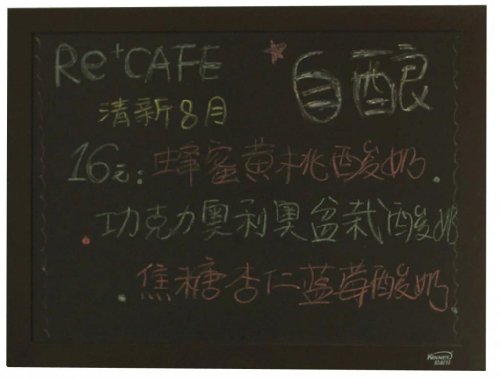 Re+CAFE
自酿
清新8月
16元:蜂蜜黄桃酸奶.
功克力奥利奥盆栽酸奶
焦糖杏仁蓝莓酸奶.